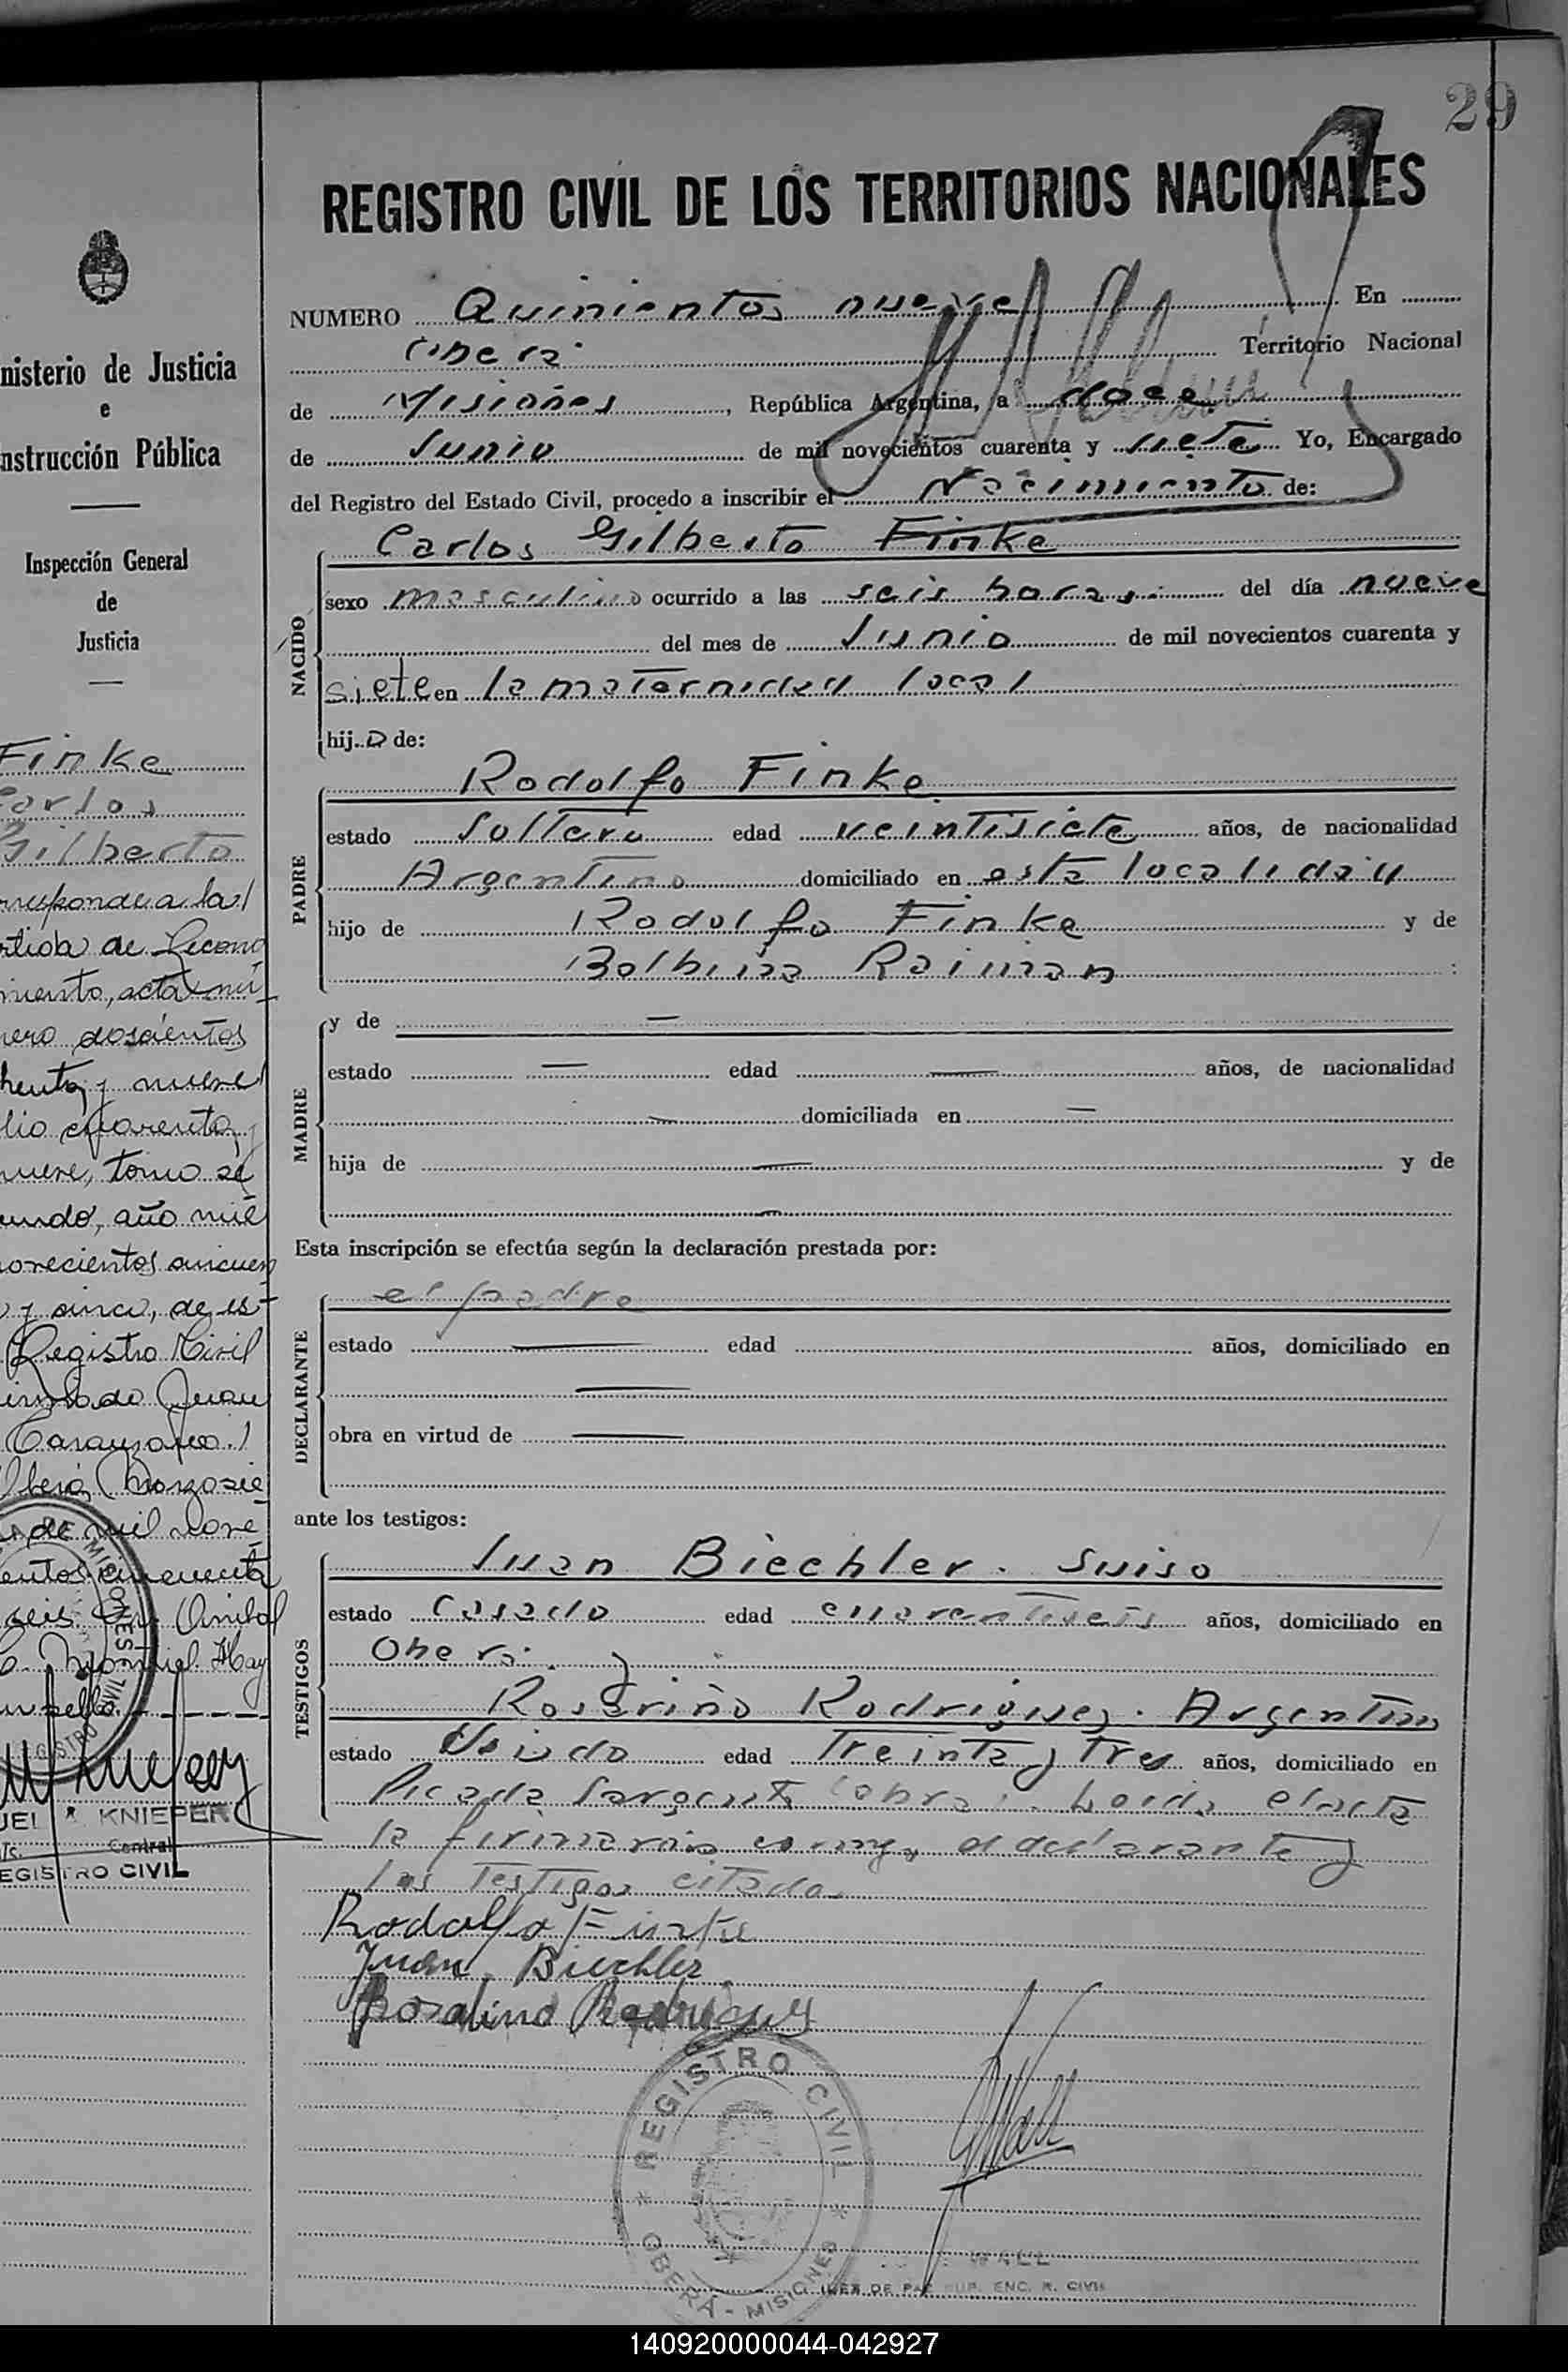 29
REGISTRO CIVIL DE LOS TERRITORIOS NACIONALES
NUMERO Quinientos nueve En
Oberá Territorio Nacional
de Misiones, República Argentina, a doce
de Junio de mil novecientos cuarenta y siete Yo, Encargado
del Registro del Estado Civil, procedo a inscribir el Nacimiento de:
NACIDO
Carlos Gilberto Finke
sexo masculino ocurrido a las seis horas. del día nueve
del mes de Junio de mil novecientos cuarenta y
siete en la maternidad local
hij.o de:
PADRE
Rodolfo Finke
estado Soltero edad veintisiete años, de nacionalidad
Argentino domiciliado en esta localidad
hijo de Rodolfo Finke y de
Balbina Raiman
MADRE
y de —
estado — edad — años, de nacionalidad
— domiciliada en —
hija de — y de
—
Esta inscripción se efectúa según la declaración prestada por:
DECLARANTE
el padre
estado — edad años, domiciliado en
—
obra en virtud de —
ante los testigos:
TESTIGOS
Juan Biechler. Suiso
estado Casado edad cuarentiseis años, domiciliado en
Oberá y
Rosarino Rodriguez. Argentino
estado Viudo edad Treinta y Tres años, domiciliado en
Picada Sargento Cabral. Leida el acta
la firmaron conmigo el declarante y
los Testigos citados
Rodolfo Finke
Juan Biechler
Rosalino Rodriguez
REGISTRO CIVIL
OBERÁ - MISIONES
WALL
JUEZ DE PAZ SUP. ENC. R. CIVIL
nisterio de Justicia
e
nstrucción Pública
Inspección General
de
Justicia
Finke
Carlos
Gilberto
rresponde a la
rtida de Recono
miento, acta nú-
mero doscientos
henta y nueve
lio cuarenta y
nueve, tomo se
undo, año mil
novecientos cincuen
y cinco, de es-
Registro Civil
Oberá, Marzo
de mil nove
entos cincuenta
seis.
MISIONES
REGISTRO CIVIL
KNIEPER
Central
REGISTRO CIVIL
140920000044-042927